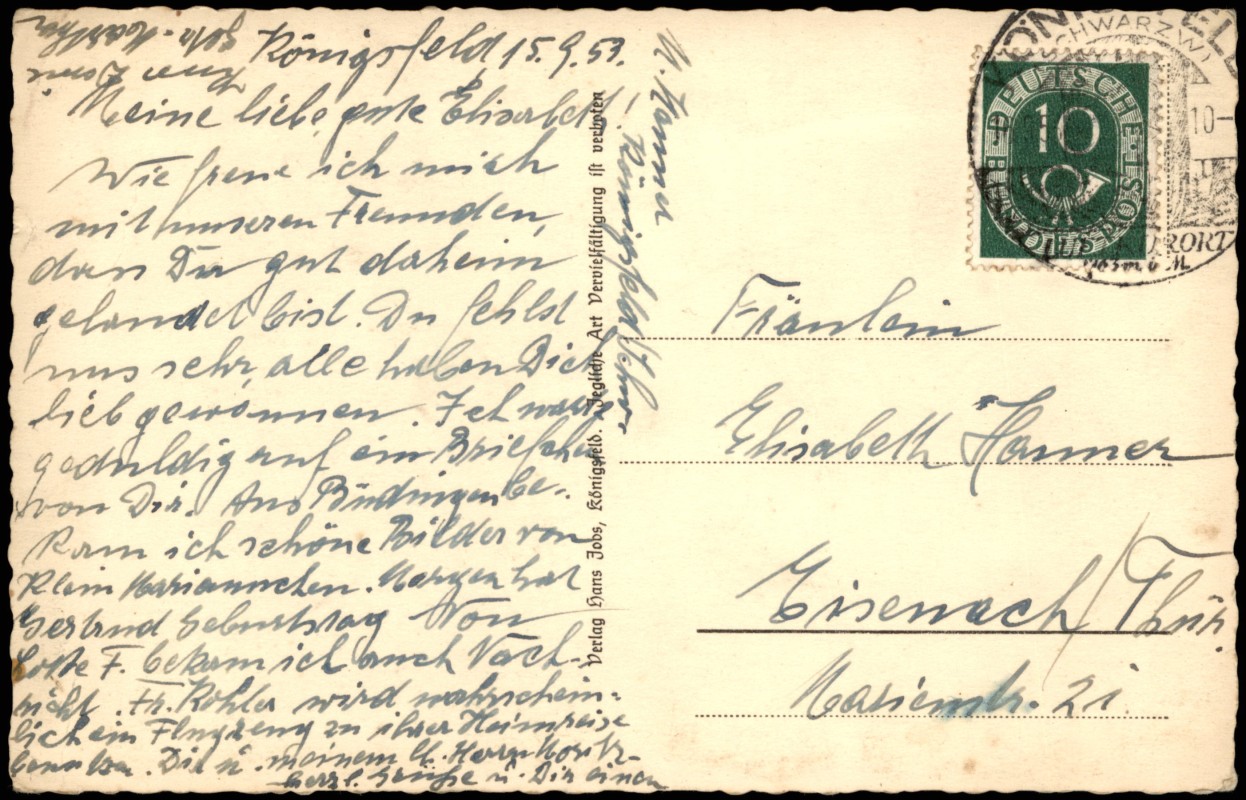 Königsfeld 15.9.53.
Meine liebe, gute Elisabeth!
Wie freue ich mich
mit unseren Freunden,
dass Du gut daheim
gelandet bist. Du fehlst
uns sehr, alle haben Dich
lieb gewonnen. Ich warte
geduldig auf ein Briefchen
von Dir. Aus Büdingen be-
kam ich schöne Bilder von
Klein Mariannchen. Morgen hat
Gertrud Geburtstag Von
Lotte F. bekam ich auch Nach-
richt. Fr. Köhler wird wahrschein-
lich ein Flugzeug zu ihrer Heimreise
benutzen. Dir u. meinem lb. Herrn Moritz
herzl. Grüße u. Dir einen
Königsfeld/Schw.
Verlag Hans Jobs, Königsfeld. Jegliche Art Vervielfältigung ist verboten
KÖNIGSFELD
SCHWARZW
10-
KURORT
DEUTSCHE BUNDESPOST
10
Fräulein
Elisabeth Hanner
Eisenach/Thür.
Marienstr. 21